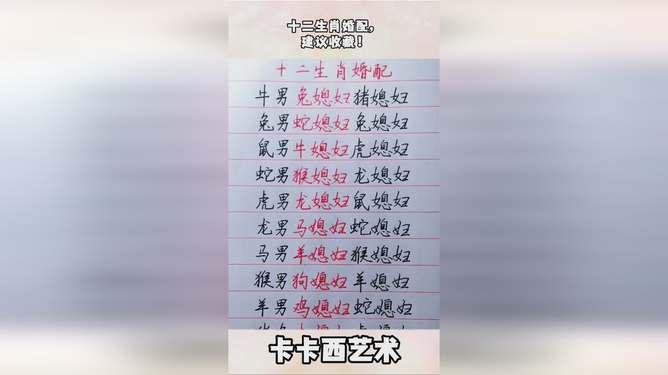 十二生肖婚配，
建议收藏！
十二生肖婚配
牛男兔媳妇猪媳妇
兔男蛇媳妇兔媳妇
鼠男牛媳妇虎媳妇
蛇男猴媳妇龙媳妇
虎男龙媳妇鼠媳妇
龙男马媳妇蛇媳妇
马男羊媳妇猴媳妇
猴男狗媳妇羊媳妇
羊男鸡媳妇蛇媳妇
卡卡西艺术